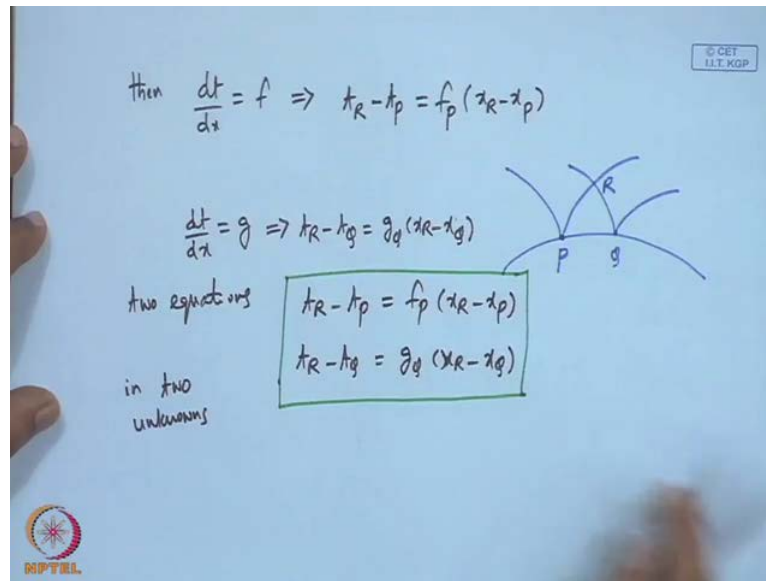 © CET
I.I.T. KGP
then dt/dx = f ⇒ t_R - t_P = f_P (x_R - x_P)
R
P Q
dt/dx = g ⇒ t_R - t_Q = g_Q (x_R - x_Q)
two equations
t_R - t_P = f_P (x_R - x_P)
t_R - t_Q = g_Q (x_R - x_Q)
in two
unknowns
NPTEL